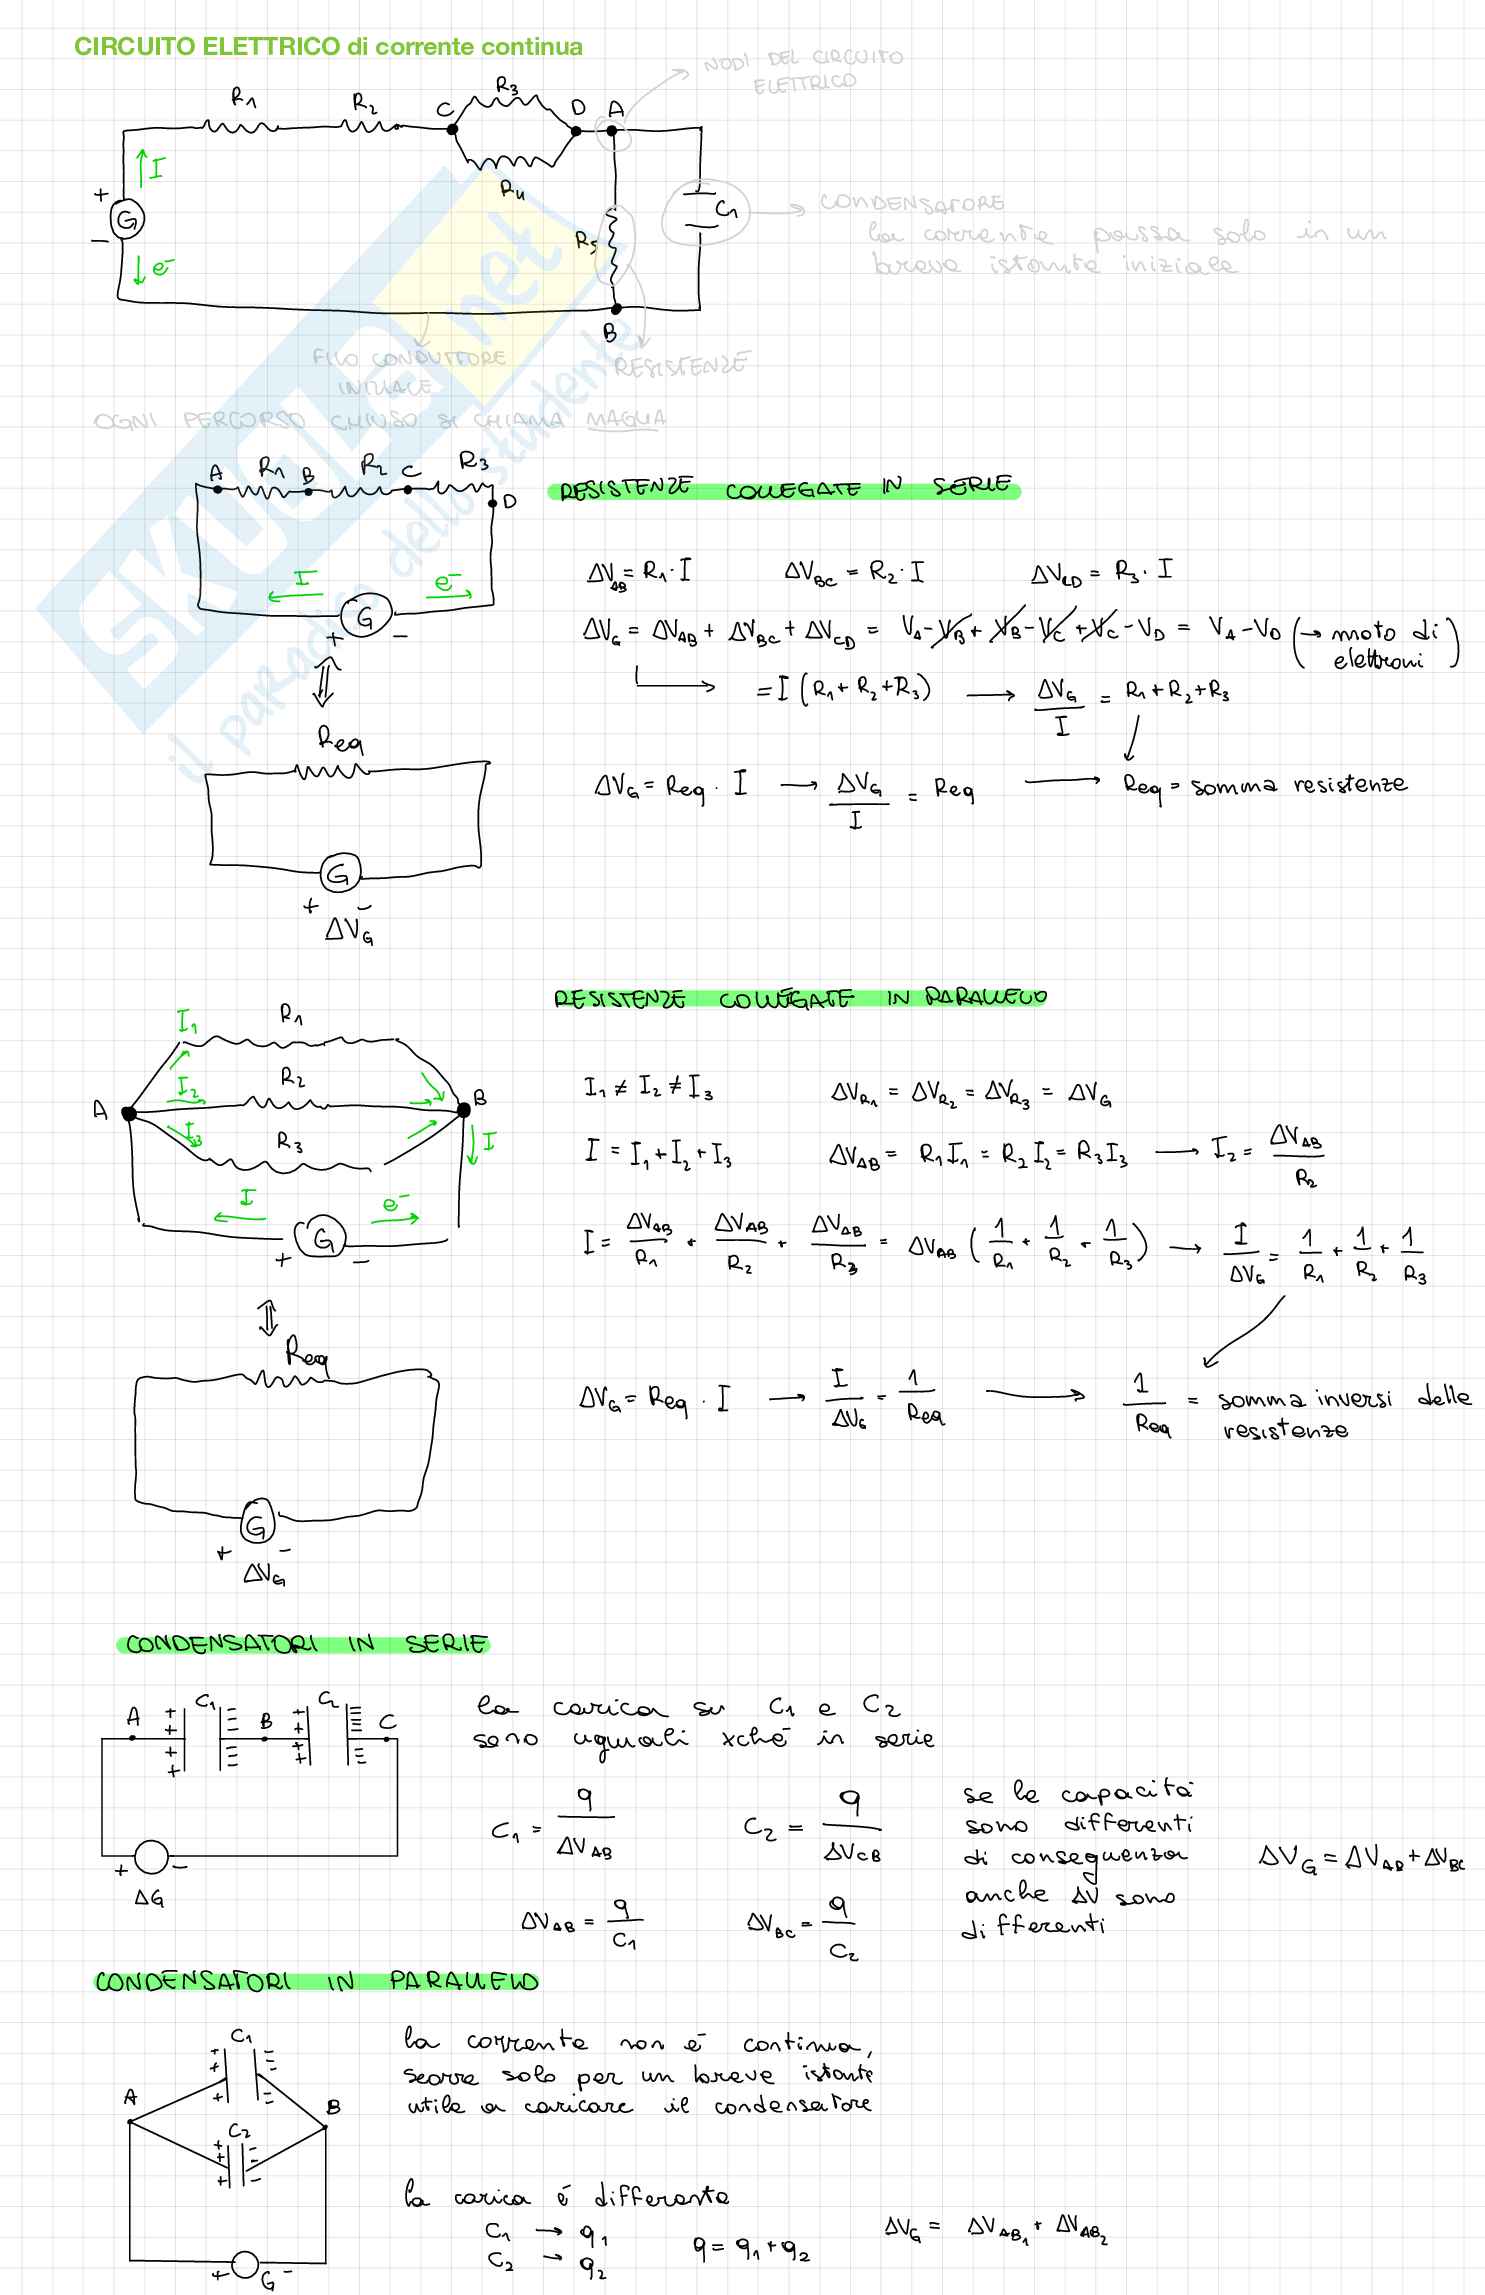 CIRCUITO ELETTRICO di corrente continua
NODI DEL CIRCUITO
ELETTRICO
R1 R2 C R3 D A
R4
I
+ G −
e⁻
R5
C1
CONDENSATORE
la corrente passa solo in un
breve istante iniziale
B
FILO CONDUTTORE
INIZIALE
RESISTENZE
OGNI PERCORSO CHIUSO SI CHIAMA MAGLIA
SKUOLA.net
il paradiso dello studente
A R1 B R2 C R3 D
I e⁻
+ G −
RESISTENZE COLLEGATE IN SERIE
ΔV_AB = R1·I ΔV_BC = R2·I ΔV_CD = R3·I
ΔV_G = ΔV_AB + ΔV_BC + ΔV_CD = V_A − V_B + V_B − V_C + V_C − V_D = V_A − V_D (→ moto di
elettroni)
= I (R1 + R2 + R3) → ΔV_G / I = R1 + R2 + R3
Req
ΔV_G = Req · I → ΔV_G / I = Req → Req = somma resistenze
G
+ −
ΔV_G
RESISTENZE COLLEGATE IN PARALLELO
I1 R1
I2 R2
I3 R3
A B
I
I e⁻
+ G −
I1 ≠ I2 ≠ I3 ΔV_R1 = ΔV_R2 = ΔV_R3 = ΔV_G
I = I1 + I2 + I3 ΔV_AB = R1 I1 = R2 I2 = R3 I3 → I2 = ΔV_AB / R2
I = ΔV_AB / R1 + ΔV_AB / R2 + ΔV_AB / R3 = ΔV_AB (1/R1 + 1/R2 + 1/R3) → I / ΔV_G = 1/R1 + 1/R2 + 1/R3
Req
ΔV_G = Req · I → I / ΔV_G = 1 / Req → 1 / Req = somma inversi delle
resistenze
G
+ −
ΔV_G
CONDENSATORI IN SERIE
A C1 B C2 C
+ −
ΔG
la carica su C1 e C2
sono uguali xché in serie
C1 = q / ΔV_AB C2 = q / ΔV_CB
se le capacità
sono differenti
di conseguenza
anche ΔV sono
differenti
ΔV_G = ΔV_AB + ΔV_BC
ΔV_AB = q / C1 ΔV_BC = q / C2
CONDENSATORI IN PARALLELO
C1
A B
C2
+ G −
la corrente non è continua,
scorre solo per un breve istante
utile a caricare il condensatore
la carica é differente
C1 → q1
C2 → q2
q = q1 + q2
ΔV_G = ΔV_AB1 + ΔV_AB2